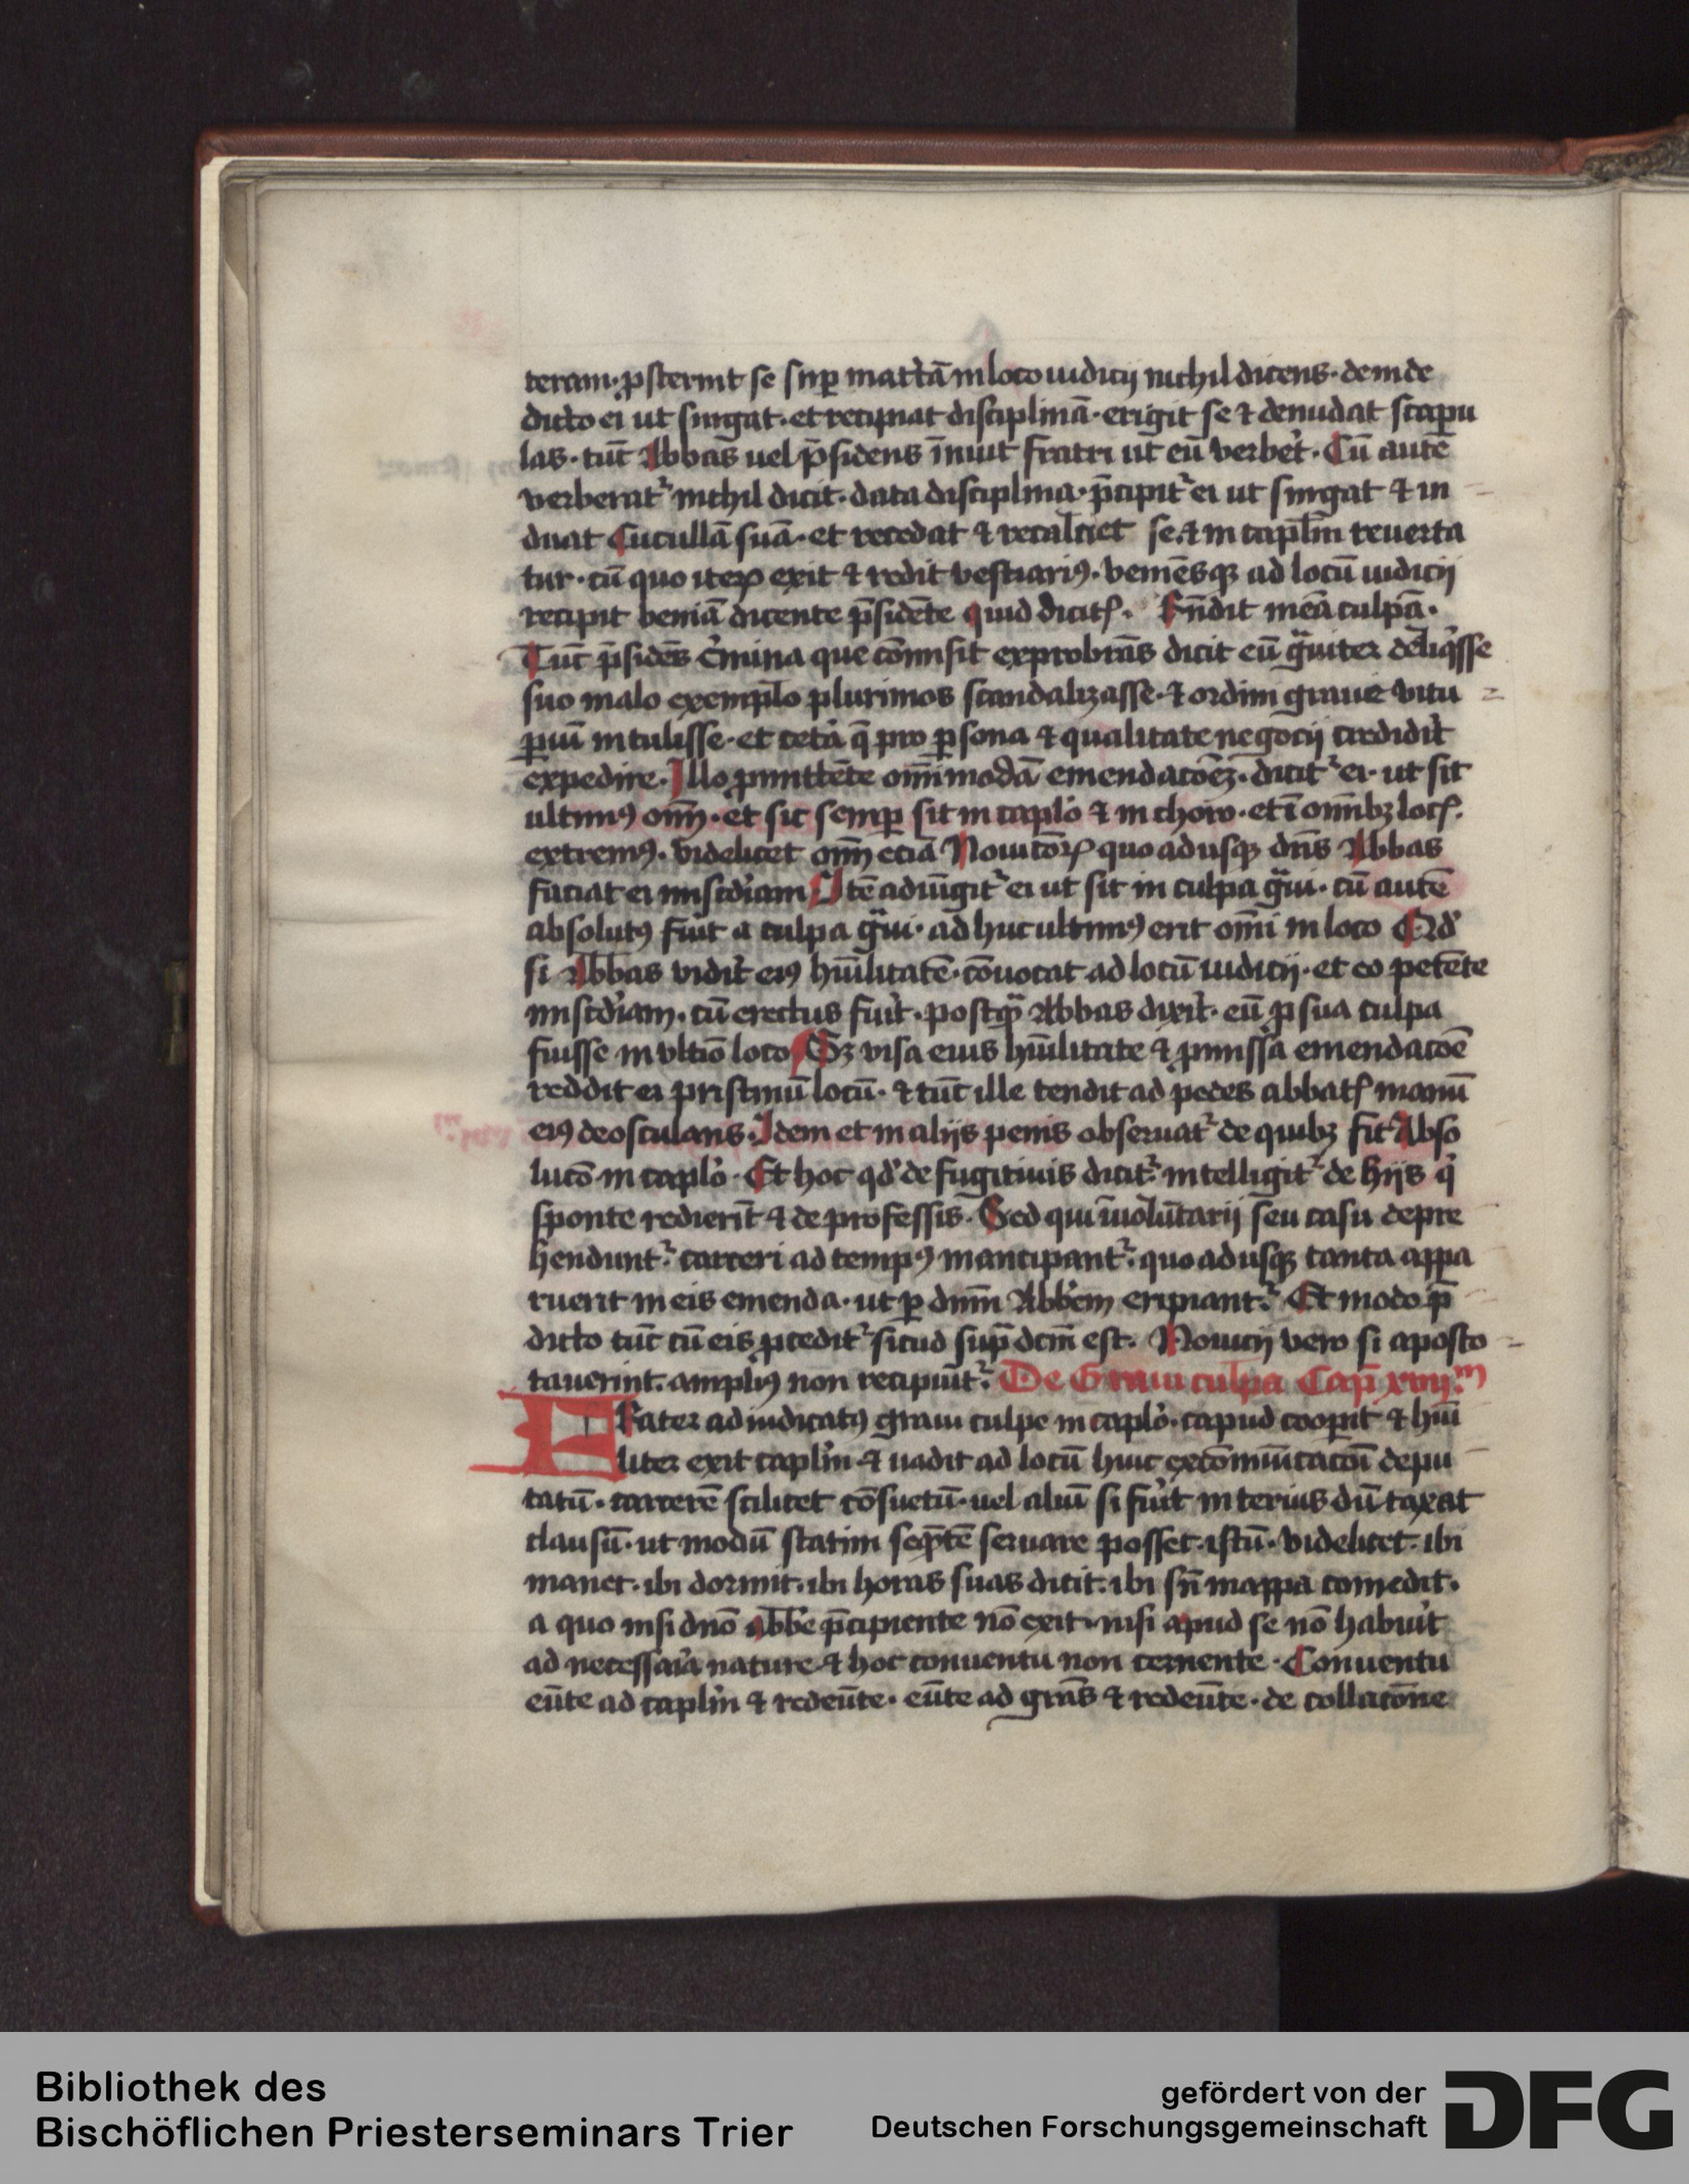 teram· ꝓsternit se suꝑ mattā in loco iudicij nichil dicens· deinde
dicto ei ut surgat· et recipiat disciplinā· erigit se ⁊ denudat scapu
las· tūc Abbas uel p̄sidens īnuit fratri ut eū verberꝫ. Cū autē
verberat᷑ nichil dicit· data disciplina· p̄cipit᷑ ei ut surgat ⁊ in
duat Cucullā suā· et recedat ⁊ recalciet se ⁊ in capl̄m reuerta
tur· cū quo iteꝝ exit ⁊ redit vestiariꝰ. veniēsqꝫ ad locū iudicij
recipit veniā dicente p̄sidēte quid dicitꝭ. Rn̄dit meā culpā.
Tūc p̄sidēs c͛mina que cōmisit exprobrās dicit eū gͣuiter deliq͛sse
suo malo exemplo plurimos scandalizasse· ⁊ ordini graue vitu
ꝑiū intulisse· et cet͛a q̄ pro ꝑsona ⁊ qualitate negocij credidit
expedire. Illo ꝓmittēte om̄imodā emendacōeꝫ· dicit᷑ ei· ut sit
ultimꝰ om̄· et sic semꝑ sit in caplo ⁊ in choro· et ī omībꝫ locꝭ.
extremꝰ. videlicet om̄ eciā Nouicoꝝ quo adusqꝫ dn̄s Abbas
faciat ei mis͛cdiam Itē adiūgit᷑ ei ut sit in culpa gͣui· cū autē
absolutꝰ fuit a culpa gͣui· adhuc ultimꝰ erit om̄i in loco Qd͛
si Abbas vidit eiꝰ hūilitatē· cōuocat ad locū iudicij· et eo petēte
mis͛cdiam. cū erectus fuit. postqͣ Abbas dixit· eū ꝓ sua culpa
fuisse in vltīo loco Sꝫ visa eius hūilitate ⁊ ꝓmissa emendacōe
reddit ei pristinū locū· ⁊ tūc ille tendit ad pedes abbatꝭ manū
eiꝰ deosculans. Idem et in alijs penis obseruat᷑ de quibꝫ fit Abso
lucō in caplo· Et hoc qd͛ de fugitiuis dicit᷑· intelligit᷑ de hijs q͛
sponte redierīt ⁊ de professis. Sed qui īuolūtarij seu casu depre
hendunt᷑· carceri ad tempꝰ mancipant᷑· quo adusqꝫ tanta appa
ruerit in eis emenda· ut ꝑ dn̄m Abb̄em eripiant᷑. Et modo p̄
dicto tūc cū eis ꝓcedit᷑ sicud sup̄ dc̄m est. Nouicij vero si aposto
tauerint· ampliꝰ non recipiūt᷑. De Graui culpa Cap̄ xviijᵐ
Frater adiudicatꝰ graui culpe in caplo· capud cooꝑit ⁊ hūi
liter exit capl̄m ⁊ uadit ad locū huic excōmūicacōi depu
tatū· carcerē scilicet cōsuetū· uel aliū si fuit interius dūtaxat
clausū· ut modū statim seqn̄tē seruare posset· istū· videlicet· ibi
manet· ibi dormit· ibi horas suas dicit· ibi sn̄ mappa comedit·
a quo nisi dn̄o abb̄e p̄cipiente nō exit· nisi apud se nō habuit
ad necessaria nature ⁊ hoc conuentu non cernente· Conuentu
eūte ad capl̄m ⁊ redeūte· eūte ad grās ⁊ redeūte· de collacōne
Bibliothek des
Bischöflichen Priesterseminars Trier
gefördert von der
Deutschen Forschungsgemeinschaft
DFG